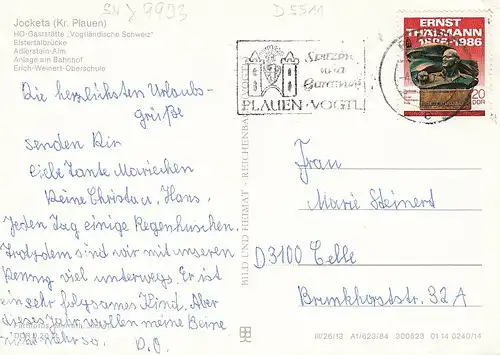 SN 9993
D 5511
Jocketa (Kr. Plauen)
HO-Gaststätte „Vogtländische Schweiz"
Elstertalbrücke
Adlerstein-Alm
Anlage am Bahnhof
Erich-Weinert-Oberschule
Die herzlichsten Urlaubs-
grüße
senden Dir
liebe Tante Mariechen
Deine Christa u. Hans.
Jeden Tag einige Regenhuschen.
Trotzdem sind wir mit unseren
Penny viel unterwegs. Er ist
ein sehr folgsames Kind. Aber
dieses Jahr wollen meine Beine
nicht mehr so. D.O.
BILD UND HEIMAT · REICHENBACH (VOGTL)
Spitzen
und
Gardinen
PLAUEN · VOGTL
ERNST
THÄLMANN
1886-1986
20
DDR
Frau
Marie Steinert
D 3100 Celle
Brunkhorststr. 32 A
III/26/13 A1/623/84 300823 01 14 0240/14